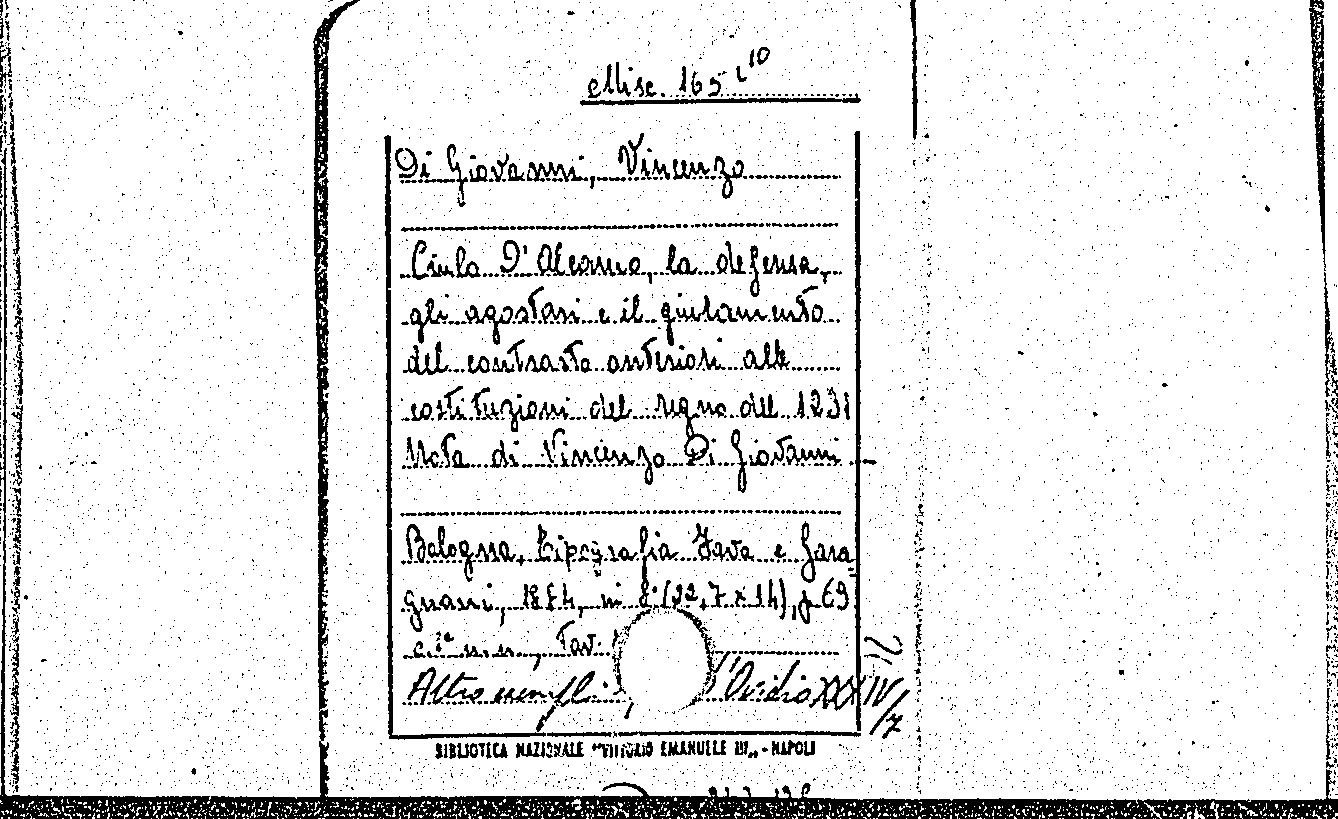 Misc. 165 (10
Di Giovanni, Vincenzo
Ciulo D'Alcamo, la defensa,
gli agostari e il giulamento
del contrasto anteriori alle
costituzioni del regno del 1231
Nota di Vincenzo Di Giovanni —
Bologna, Tipografia Fava e Gara
gnani, 1874, in 8° (22,7 x 14), p. 69
c. 1ª n.n., Tav.
Altro esempl.
Ovidio XXXIV/7
BIBLIOTECA NAZIONALE "VITTORIO EMANUELE III„ - NAPOLI